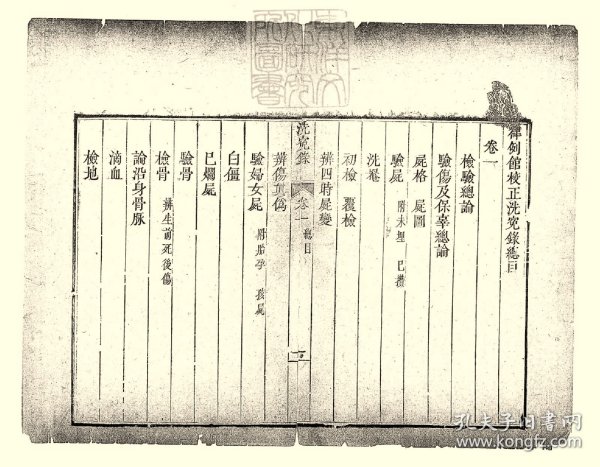 律例館校正洗冤錄總目
卷一
檢驗總論
驗傷及保辜總論
屍格 屍圖
驗屍 附未埋 已攢
洗罨
初檢 覆檢
辨四時屍變
洗冤錄 卷一 總目 一
辨傷真偽
驗婦女屍 附胎孕 孩屍
白僵
已爛屍
驗骨
檢骨 辨生前死後傷
論沿身骨脉
滴血
檢地
孔夫子旧书网
www.kongfz.com